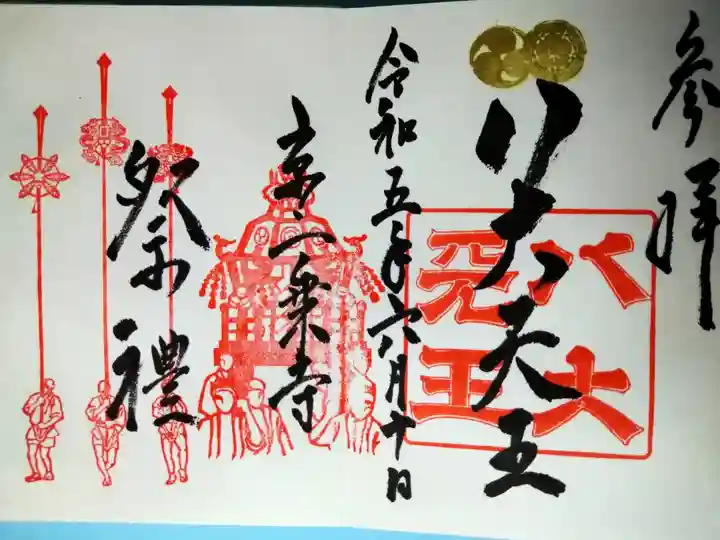 参拝
八大天王
八大
天王
令和五年六月十日
京一乗寺
祭禮